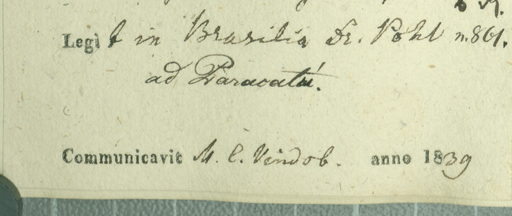 Legit in Brasilia Dr. Pohl n. 861.
ad Paracatú.
Communicavit M. C. Vindob. anno 1839